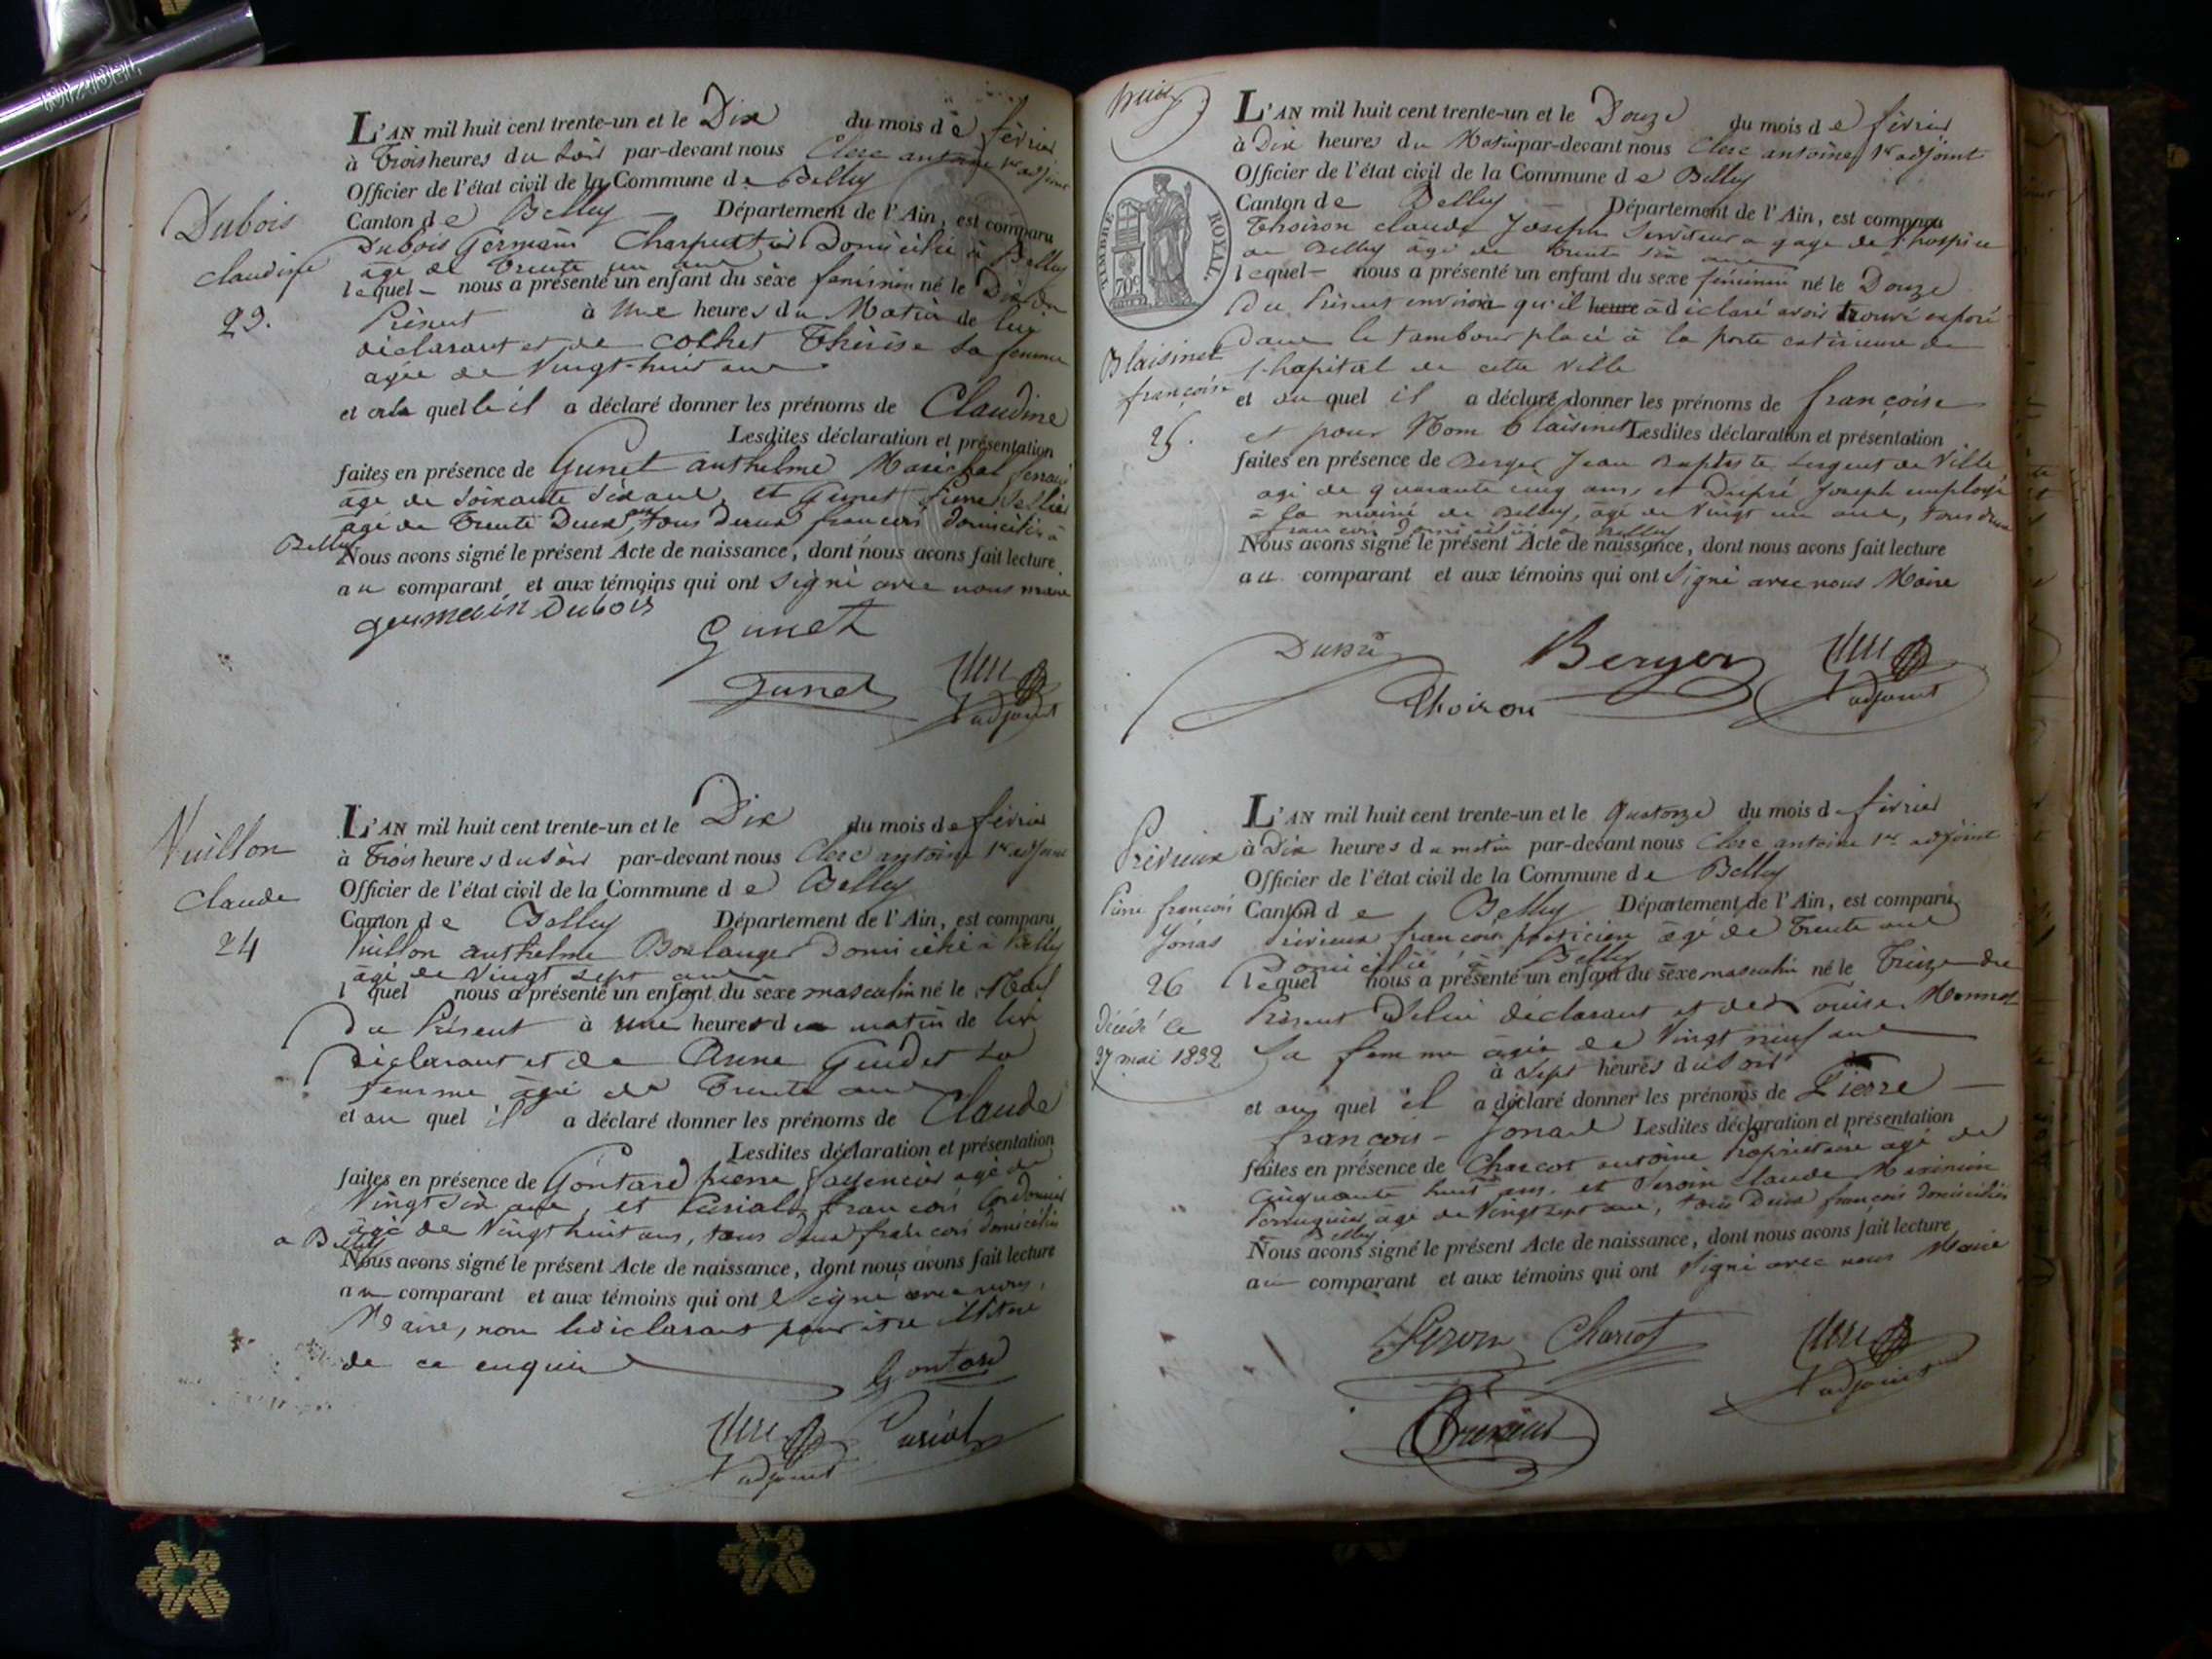 Dubois
claudine
23.
L'AN mil huit cent trente-un et le Dix du mois de février
à Trois heures du soir par-devant nous Clerc antoine 1er adjoint
Officier de l'état civil de la Commune de Belley
Canton de Belley Département de l'Ain, est comparu
Dubois Germain Charpentier Domicilié à Belley
âgé de Trente un ans
lequel nous a présenté un enfant du sèxe feminin né le Dix du
Présent à Une heures du Matin de lui
déclarant et de Colhet Thérèse sa femme
agée de Vingt-huit ans
et à la quelle il a déclaré donner les prénoms de Claudine
Lesdites déclaration et présentation
faites en présence de Gunet anthelme Maréchal ferrant
âgé de soixante six ans, et Gunet pierre Sellier
âgé de Trente Deux ans, tous deux francais domiciliés à
Belley
Nous avons signé le présent Acte de naissance, dont nous avons fait lecture
au comparant et aux témoins qui ont signé avec nous maire
germain Dubois
Gunet
Gunet
Clerc
adjoint
Vuillon
claude
24
L'AN mil huit cent trente-un et le Dix du mois de février
à Trois heures du soir par-devant nous Clerc antoine 1er adjoint
Officier de l'état civil de la Commune de Belley
Canton de Belley Département de l'Ain, est comparu
Vuillon anthelme Boulanger Domicilié à Belley
âgé de Vingt sept ans
l quel nous a présenté un enfant du sexe masculin né le Neuf
du Présent à une heures du matin de lui
déclarant et de Anne Gudet sa
femme âgé de Trente ans
et au quel il a déclaré donner les prénoms de Claude
Lesdites déclaration et présentation
faites en présence de Gontard pierre fayencier agé de
Vingt six ans, et Pariat francois Cordonnier
âgé de Vingt huit ans, tous deux francais domiciliés
a Belley
Nous avons signé le présent Acte de naissance, dont nous avons fait lecture
au comparant et aux témoins qui ont signé avec nous,
Maire, non le déclarant pour être illitéré
de ce enquis
Gontard
Clerc
adjoint
Pariat
TIMBRE ROYAL
70c
Blaisinet
françoise
25.
L'AN mil huit cent trente-un et le Douze du mois de février
à Dix heures du Matin par-devant nous Clerc antoine 1er adjoint
Officier de l'état civil de la Commune de Belley
Canton de Belley Département de l'Ain, est comparu
Thoiron claude Joseph Serviteur a gage de l'hospice
de Belley âgé de Trente six ans
lequel nous a présenté un enfant du sexe féminin né le Douze
Du Présent environ qu'il heure a déclaré avoir trouvé exposé
Dans le tambour placé à la porte extérieure de
l'hapital de cette Ville
et au quel il a déclaré donner les prénoms de françoise
et pour Nom Blaisinet Lesdites déclaration et présentation
faites en présence de Berger Jean Baptiste Sergent de Ville
agé de quarante cinq ans, et Dupré Joseph employé
à la mairie de Belley, âgé de Vingt un ans, tous deux
francois domiciliés à Belley
Nous avons signé le présent Acte de naissance, dont nous avons fait lecture
au comparant et aux témoins qui ont signé avec nous Maire
Dupré
Berger
Thoiron
Clerc
adjoint
Prévieux
Pierre francois
Jonas
26
Décédé le
27 mai 1832
L'AN mil huit cent trente-un et le Quatorze du mois de février
à Dix heures du matin par-devant nous Clerc antoine 1er adjoint
Officier de l'état civil de la Commune de Belley
Canton de Belley Département de l'Ain, est comparu
Prévieux francois praticien âgé de Trente ans
Domicilié à Belley
lequel nous a présenté un enfant du sèxe masculin né le Treize du
Présent Delui déclarant et de Louise Monnet
Sa femme agée de Vingt neuf ans
à Sept heures du soir
et au quel il a déclaré donner les prénoms de Pierre
francois - Jonas Lesdites déclaration et présentation
faites en présence de Charcot antoine Propriétaire âgé de
Cinquante huit ans, et Peroin Claude Maximin
Perruquier, âgé de Vingt sept ans, tous Deux françois domiciliés
Belley
Nous avons signé le présent Acte de naissance, dont nous avons fait lecture
au comparant et aux témoins qui ont signé avec nous Maire
Peroin
Charcot
Clerc
adjoint
Prévieux